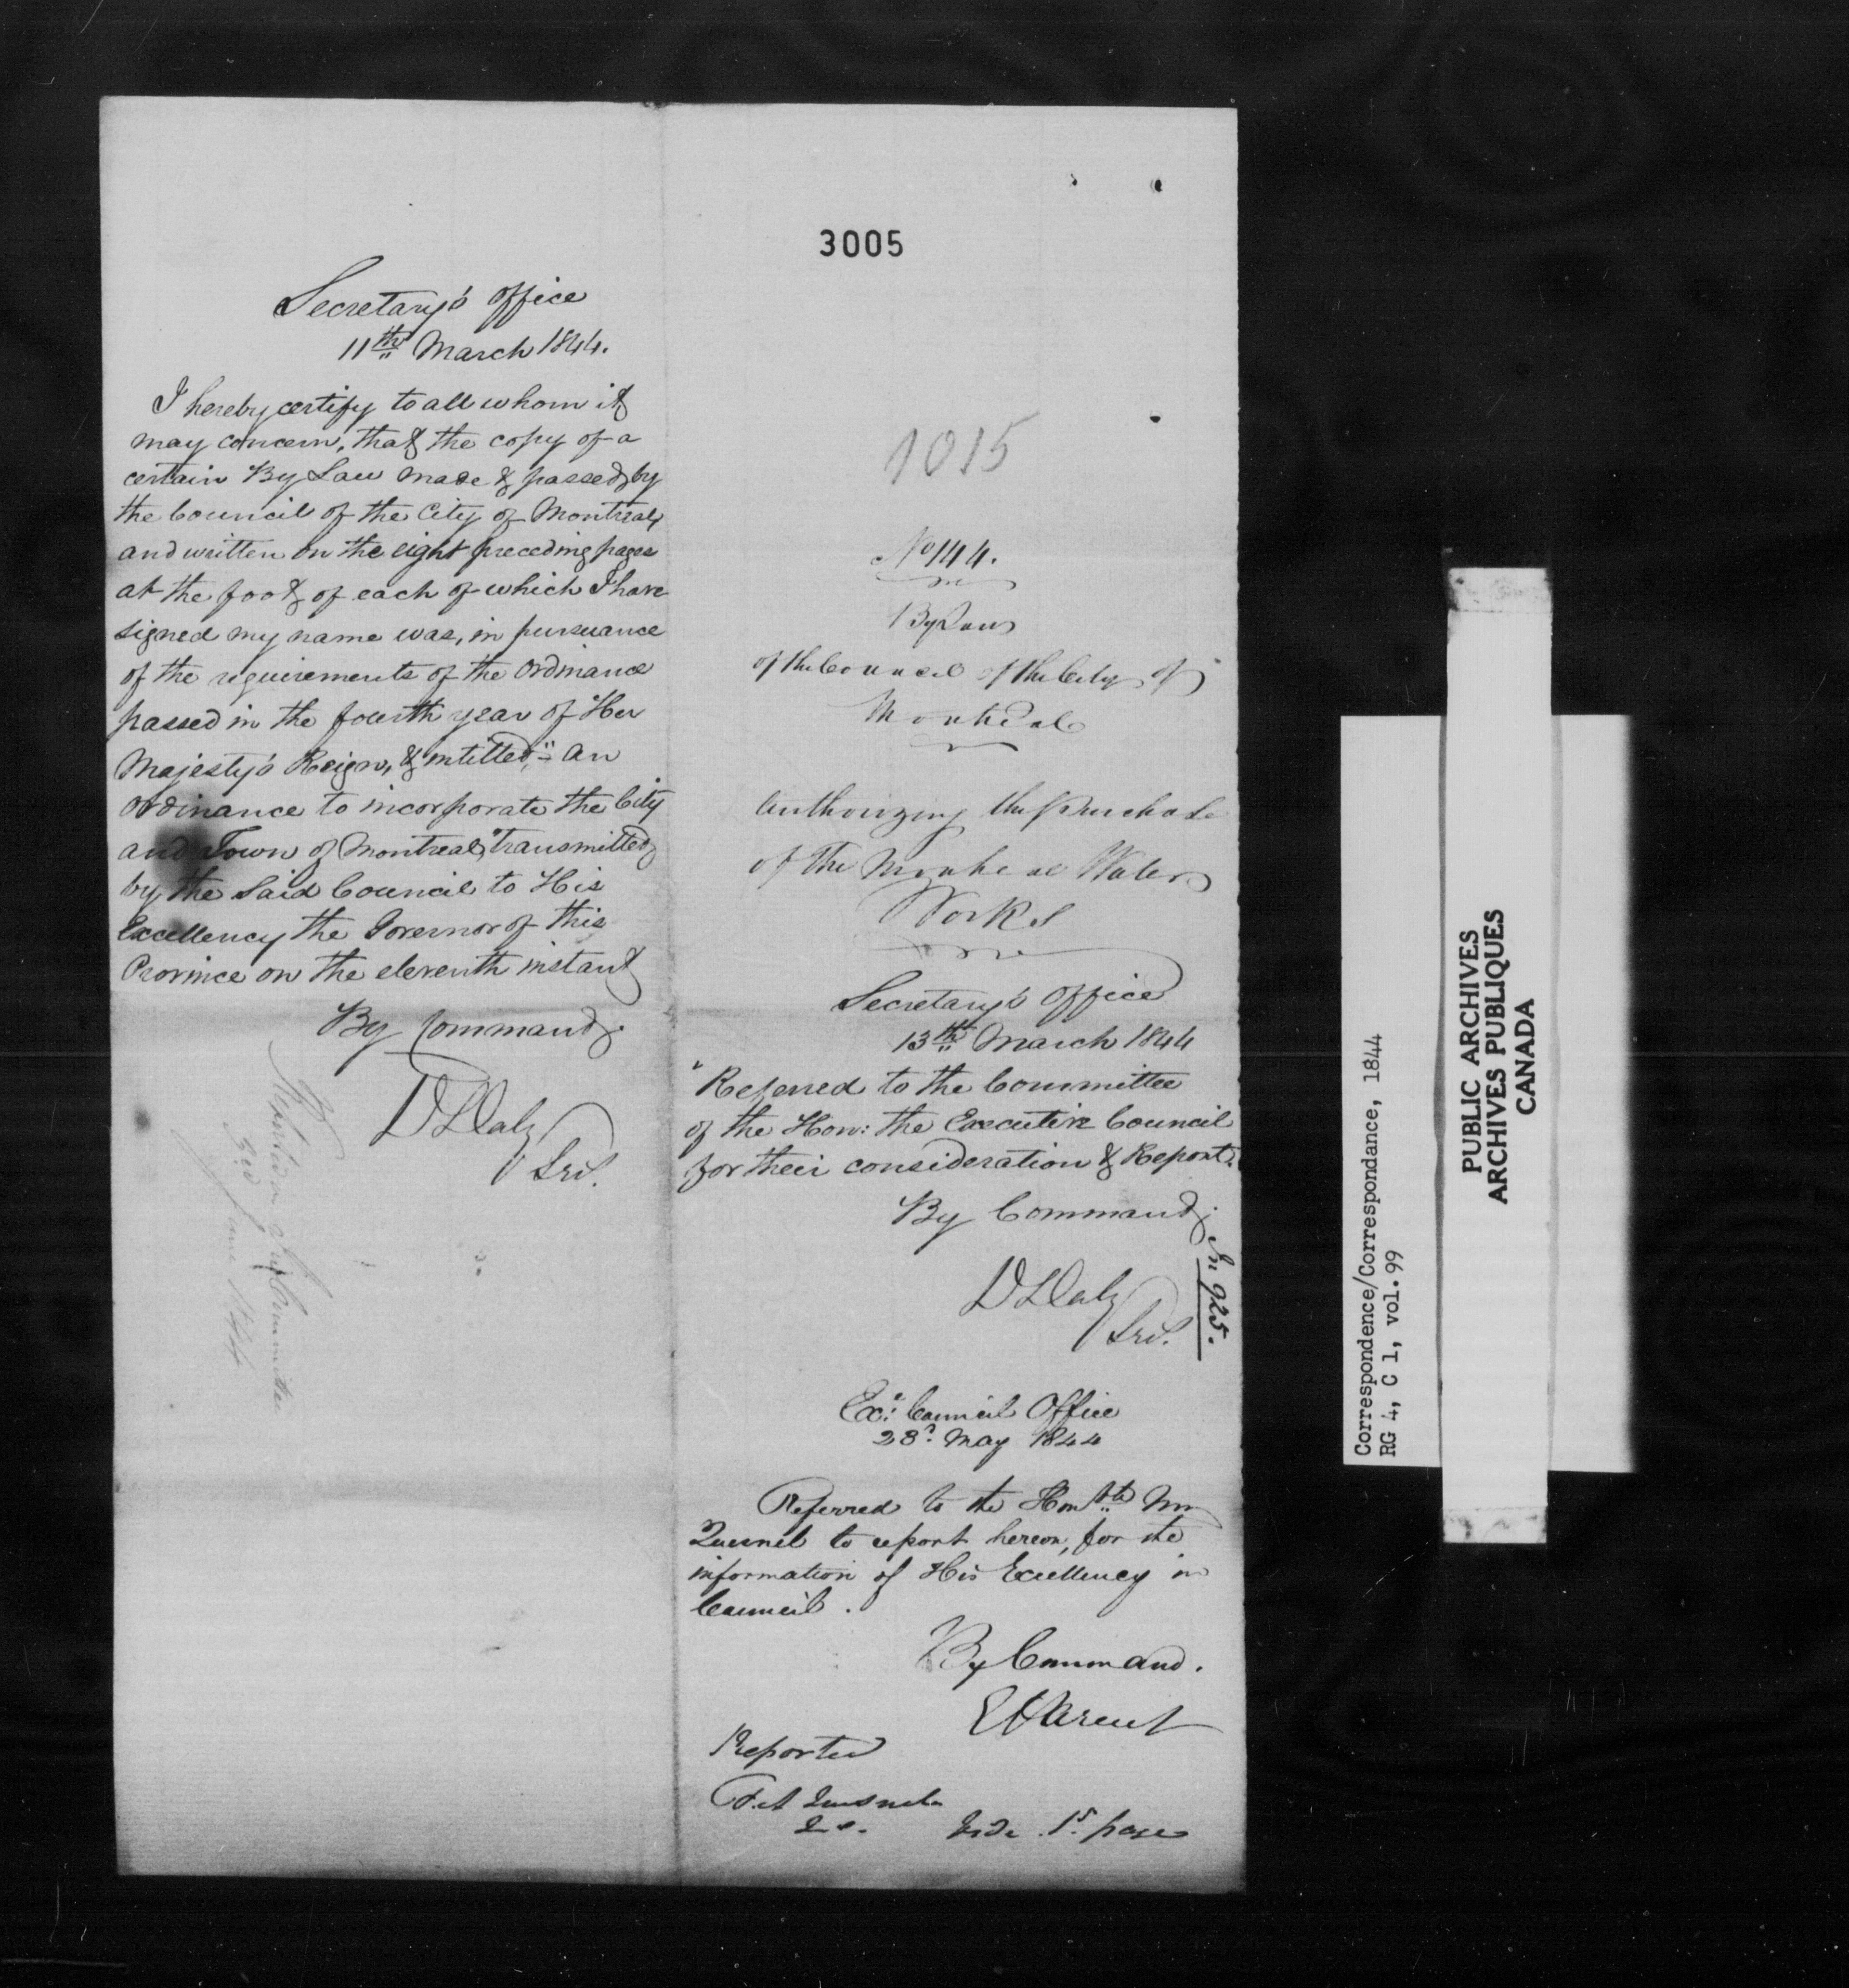 3005
Secretary's Office
11th March 1844.
I hereby certify to all whom it
may concern, that the copy of a
certain By Law made & passed by
the Council of the City of Montreal,
and written on the eight preceding pages
at the foot of each of which I have
signed my name was, in pursuance
of the requirements of the Ordinance
passed in the fourth year of Her
Majesty's Reign, & intitled, "An
Ordinance to incorporate the City
and Town of Montreal," transmitted
by the said Council to His
Excellency the Governor of this
Province on the eleventh instant
By Command,
D Daly
Secy.
Reported in
3rd June 1844
1015
No 144.
By Law
of the Council of the City of
Montreal
Authorizing the Purchase
of the Montreal Water
Works
Secretary's Office
13th March 1844
Referred to the Committee
of the Hon: the Executive Council
for their consideration & Report.
By Command,
D Daly
Secy.
In 925.
Ex: Council Office
28 May 1844
Referred to the Honble Mr
Quesnel to report hereon, for the
information of His Excellency in
Council.
By Command.
E Parent
Reported
F. A. Quesnel
Vide 1st page
Correspondence/Correspondance, 1844
RG 4, C 1, vol. 99
PUBLIC ARCHIVES
ARCHIVES PUBLIQUES
CANADA